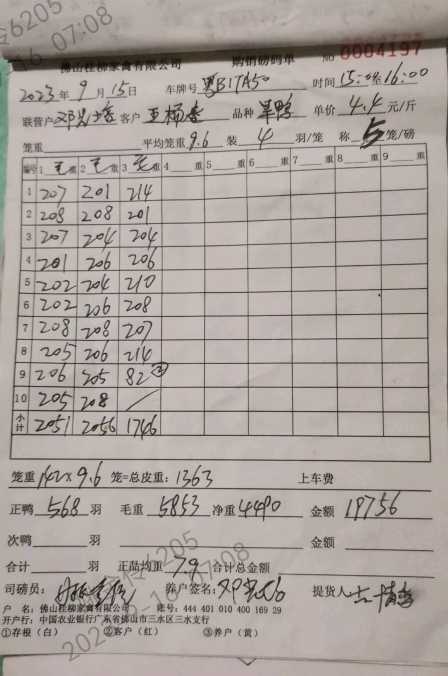 佛山桂柳家禽有限公司 购销磅码单 NO 0004197
2023年9月15日 车牌号 粤B17A50 时间 15:00至16:00
联营户 客户 王杨 品种 旱鸭 单价 4.4 元/斤
笼重 平均笼重 9.6 装 4 羽/笼 称 5 笼/磅
编号 1 毛重 2 毛重 3 毛重 4 重 5 重 6 重 7 重 8 重 9 重
1 207 201 214
2 208 208 201
3 207 204 204
4 201 206 206
5 202 204 210
6 202 206 208
7 208 208 207
8 205 206 214
9 206 205 82②
10 205 208 /
小计 2051 2056 1746
笼重 142×9.6 笼=总皮重: 1363 上车费
正鸭 568 羽 毛重 5853 净重 4490 金额 19756
次鸭 羽 金额
合计 羽 正品均重 7.9 合计总金额
司磅员: 养户签名: 提货人
户 名: 佛山桂柳家禽有限公司 账号: 444 401 010 400 169 29
开户行: 中国农业银行广东省佛山市三水区三水支行
①存根（白） ②客户（红） ③养户（黄）